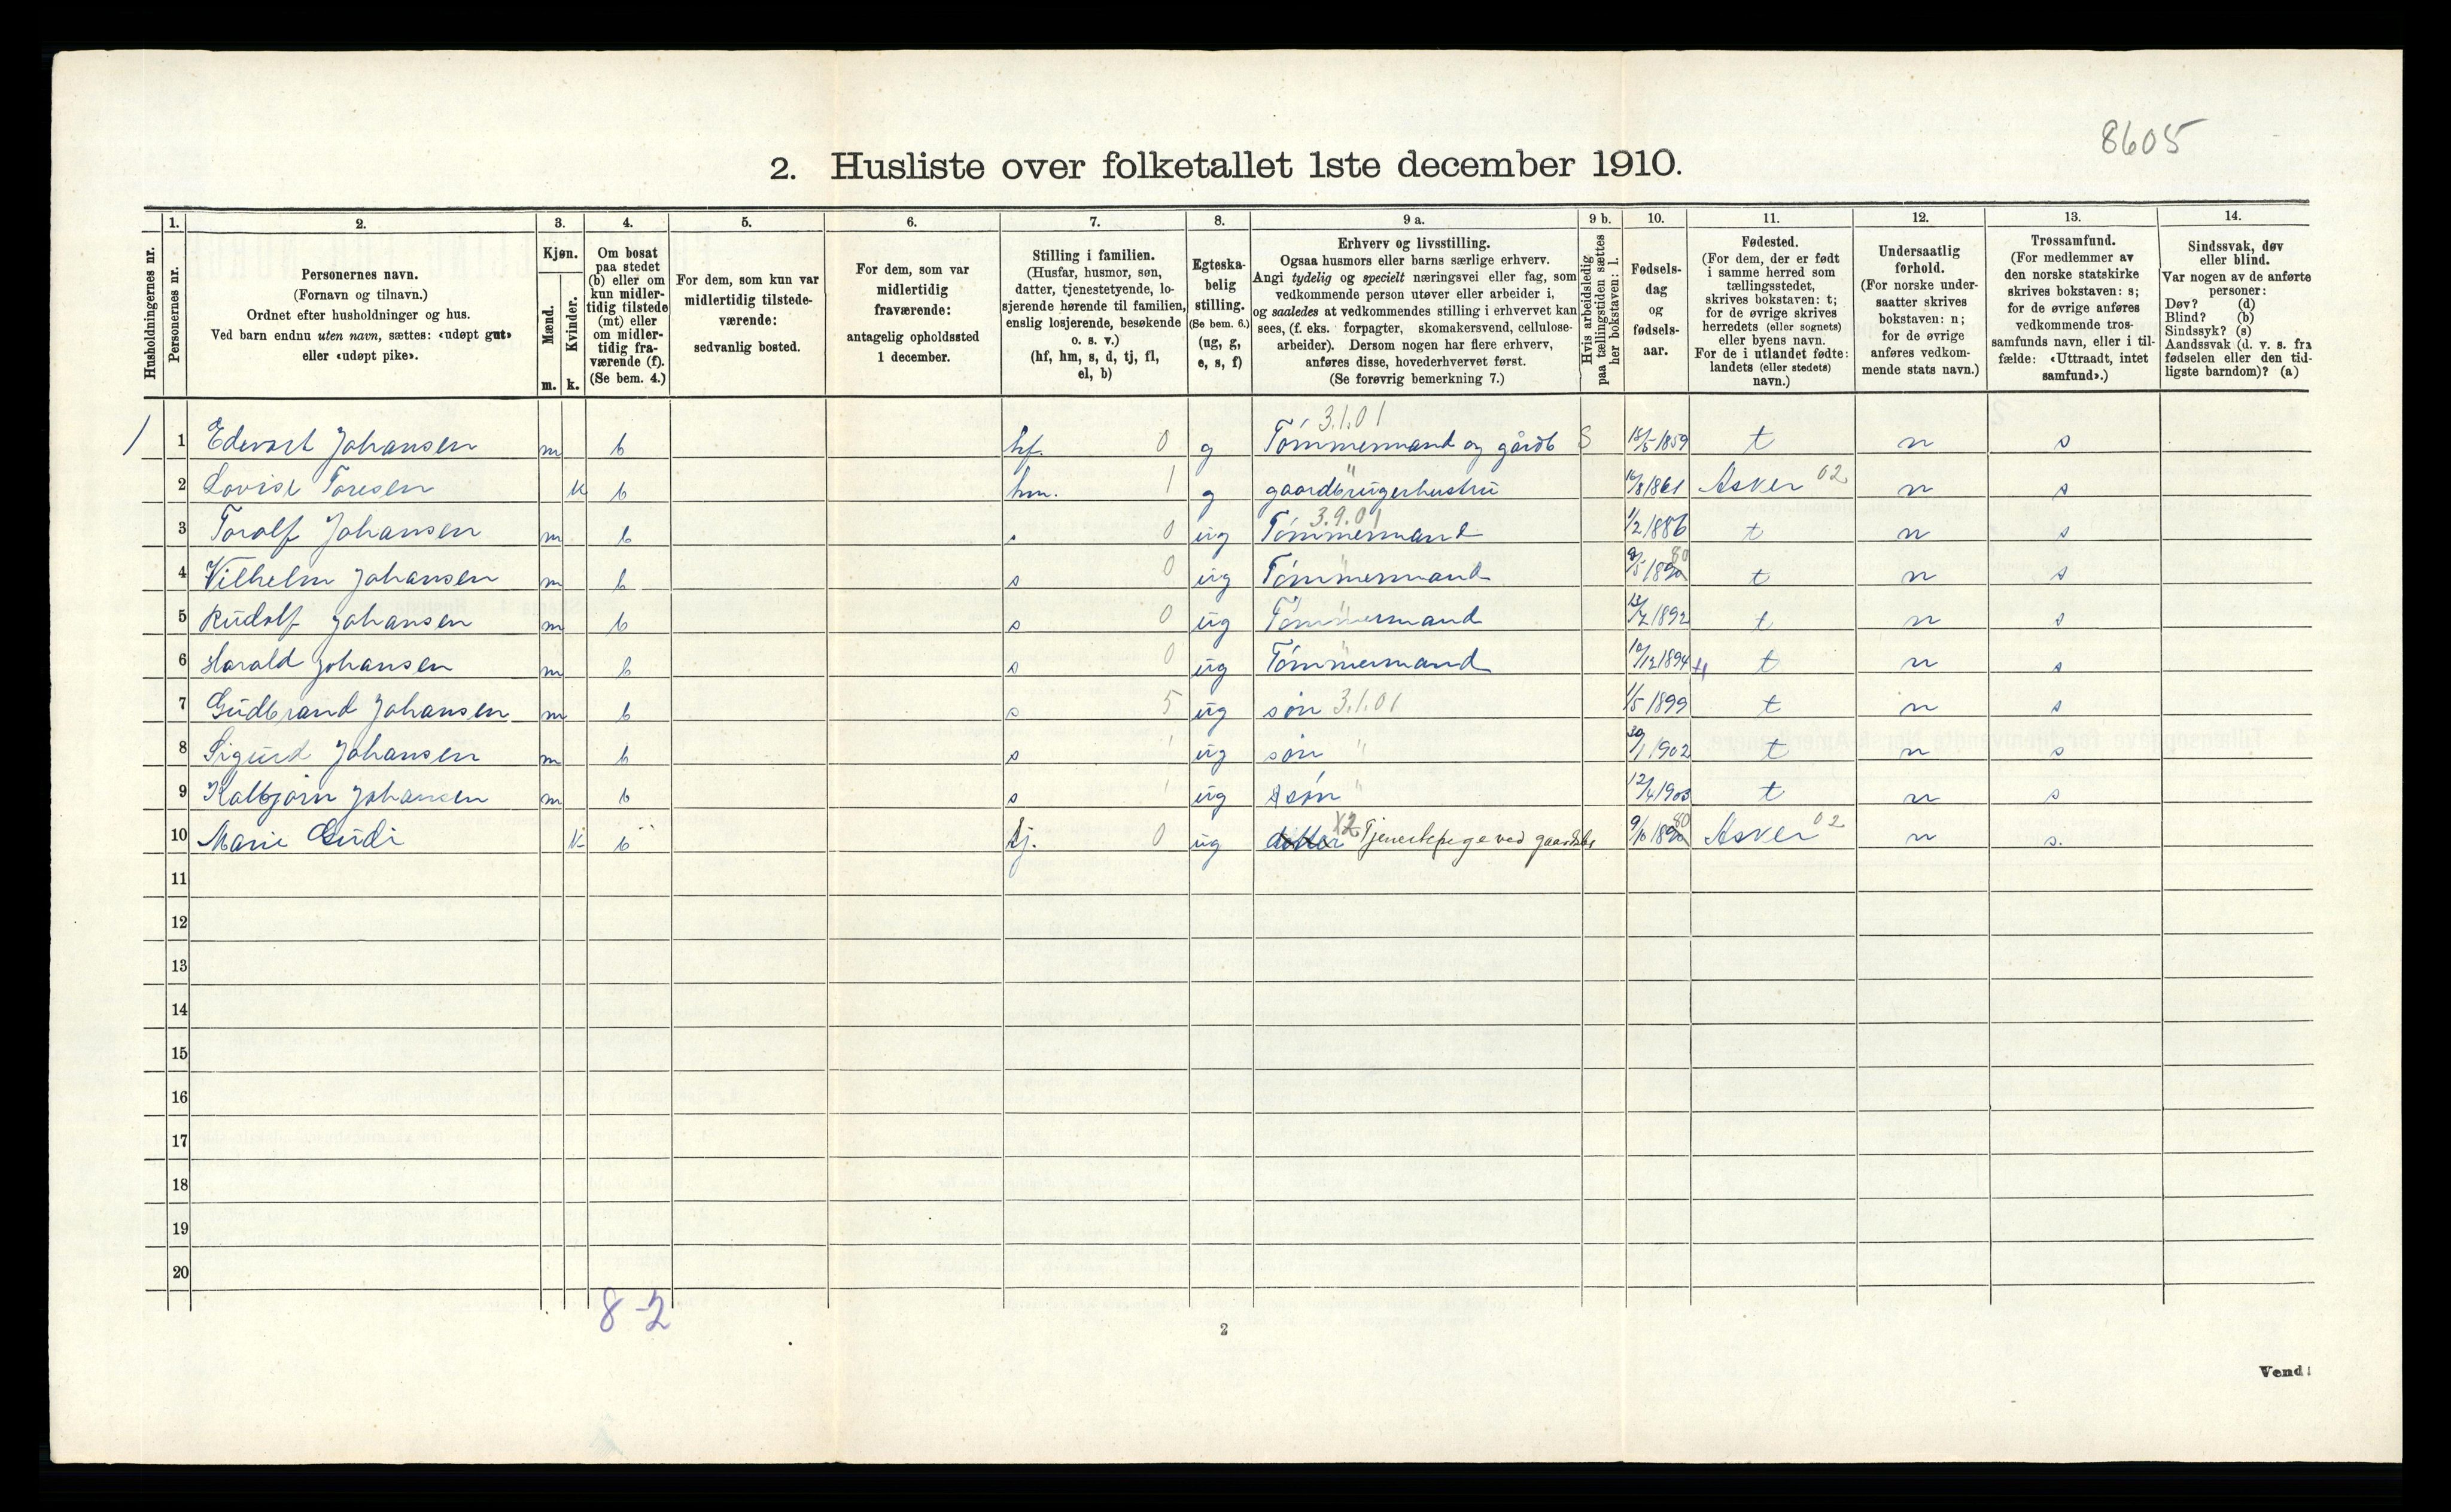 8605
2. Husliste over folketallet 1ste december 1910.
Husholdningernes nr.
1. Personernes nr.
2. Personernes navn.
(Fornavn og tilnavn.)
Ordnet efter husholdninger og hus.
Ved barn endnu uten navn, sættes: «udøpt gut»
eller «udøpt pike».
3. Kjøn.
Mænd. m.
Kvinder. k.
4. Om bosat
paa stedet
(b) eller om
kun midler-
tidig tilstede
(mt) eller
om midler-
tidig fra-
værende (f).
(Se bem. 4.)
5. For dem, som kun var
midlertidig tilstede-
værende:
sedvanlig bosted.
6. For dem, som var
midlertidig
fraværende:
antagelig opholdssted
1 december.
7. Stilling i familien.
(Husfar, husmor, søn,
datter, tjenestetyende, lo-
sjerende hørende til familien,
enslig losjerende, besøkende
o. s. v.)
(hf, hm, s, d, tj, fl,
el, b)
8. Egteska-
belig
stilling.
(Se bem. 6.)
(ug, g,
e, s, f)
9 a. Erhverv og livsstilling.
Ogsaa husmors eller barns særlige erhverv.
Angi tydelig og specielt næringsvei eller fag, som
vedkommende person utøver eller arbeider i,
og saaledes at vedkommendes stilling i erhvervet kan
sees, (f. eks. forpagter, skomakersvend, cellulose-
arbeider). Dersom nogen har flere erhverv,
anføres disse, hovederhvervet først.
(Se forøvrig bemerkning 7.)
9 b. Hvis arbeidsledig
paa tællingstiden sættes
her bokstaven: l.
10. Fødsels-
dag
og
fødsels-
aar.
11. Fødested.
(For dem, der er født
i samme herred som
tællingsstedet,
skrives bokstaven: t;
for de øvrige skrives
herredets (eller sognets)
eller byens navn.
For de i utlandet fødte:
landets (eller stedets)
navn.)
12. Undersaatlig
forhold.
(For norske under-
saatter skrives
bokstaven: n;
for de øvrige
anføres vedkom-
mende stats navn.)
13. Trossamfund.
(For medlemmer av
den norske statskirke
skrives bokstaven: s;
for de øvrige anføres
vedkommende tros-
samfunds navn, eller i til-
fælde: «Uttraadt, intet
samfund».)
14. Sindssvak, døv
eller blind.
Var nogen av de anførte
personer:
Døv? (d)
Blind? (b)
Sindssyk? (s)
Aandssvak (d. v. s. fra
fødselen eller den tid-
ligste barndom)? (a)
3.1.01
1 1 Edevart Johansen m b hf. 0 g Tömmermand og gårdb S 18/5 1859 t n s
2 Lovise Toresen k b hm. 1 g gaardbrugerhustru " 1861 Asker 02 n s
3 Torolf Johansen m b s 0 ug Tömmermand 3.9.01 1/2 1886 t n s
4 Vilhelm Johansen m b s 0 ug Tömmermand " 9/5 1890 t n s
5 Rudolf Johansen m b s 0 ug Tömmermand " 1892 t n s
6 Harald Johansen m b s 0 ug Tömmermand " 10/12 1894 t n s
7 Gudbrand Johansen m b s 5 ug sön 3.1.01 1/5 1899 t n s
8 Sigurd Johansen m b s " ug sön " 30/1 1902 t n s
9 Kolbjörn Johansen m b s " ug sön " 12/4 1903 t n s
10 Marie Gudi k b tj. 0 ug datter X2 Tjenestepige ved gaardsbr 9/10 1890 Asker 02 n s.
11
12
13
14
15
16
17
18
19
20
8-2
2
Vend!